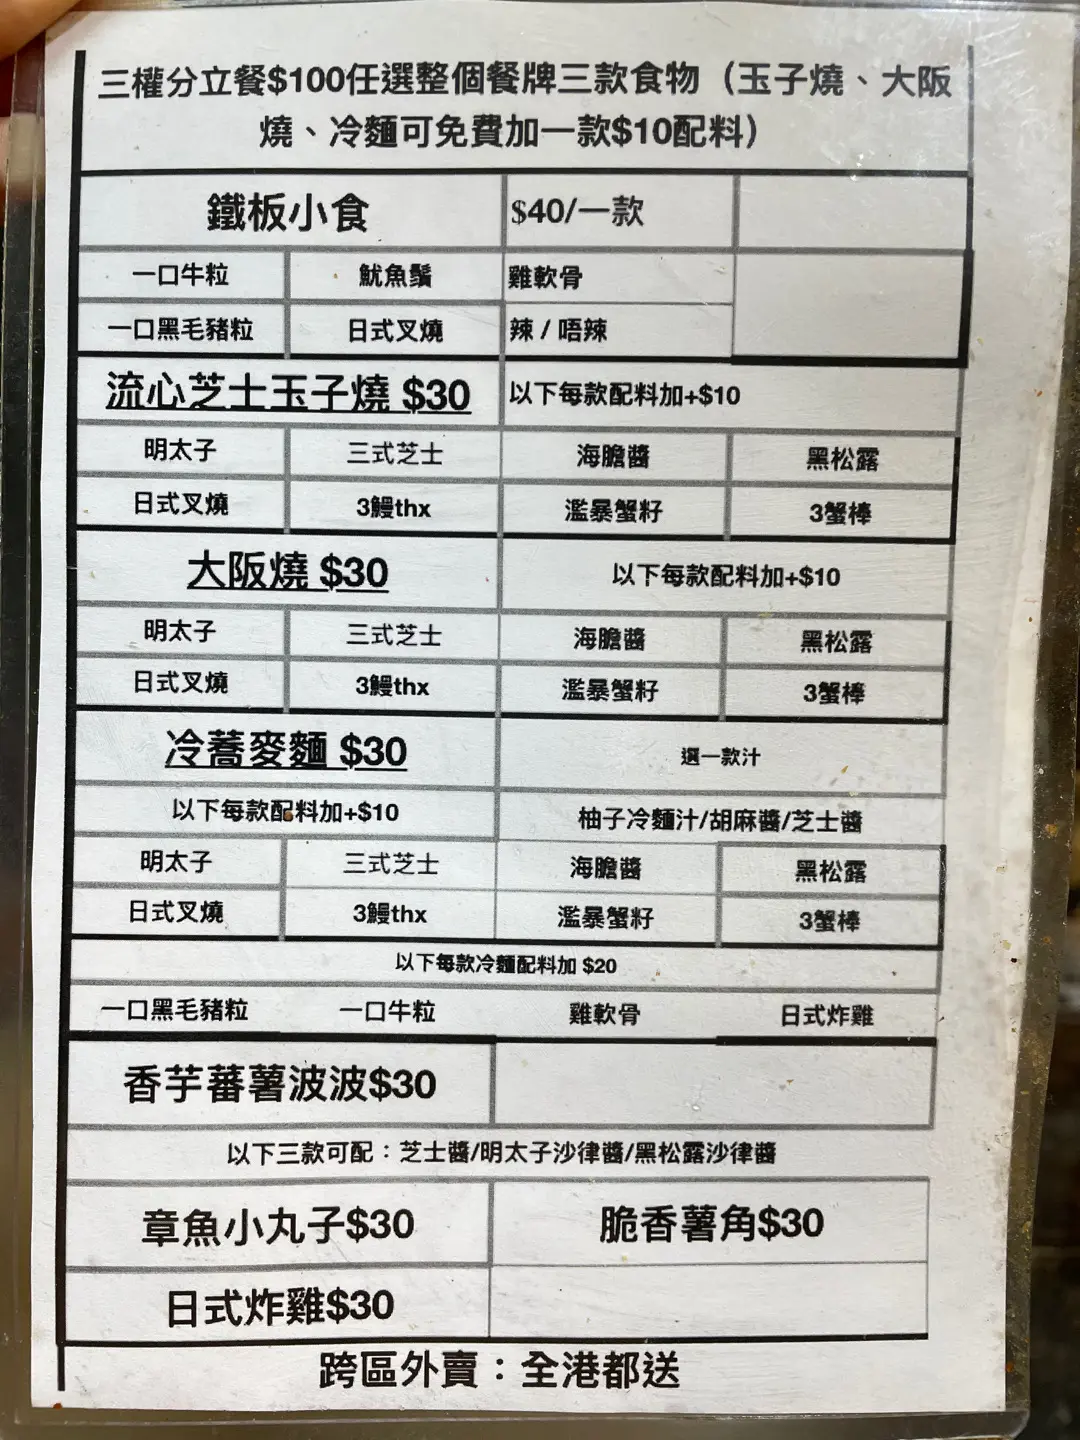 三權分立餐$100任選整個餐牌三款食物（玉子燒、大阪
燒、冷麵可免費加一款$10配料）
鐵板小食 $40/一款
一口牛粒 魷魚鬚 雞軟骨
一口黑毛豬粒 日式叉燒 辣 / 唔辣
流心芝士玉子燒 $30 以下每款配料加+$10
明太子 三式芝士 海膽醬 黑松露
日式叉燒 3鰻thx 濫暴蟹籽 3蟹棒
大阪燒 $30 以下每款配料加+$10
明太子 三式芝士 海膽醬 黑松露
日式叉燒 3鰻thx 濫暴蟹籽 3蟹棒
冷蕎麥麵 $30 選一款汁
以下每款配料加+$10 柚子冷麵汁/胡麻醬/芝士醬
明太子 三式芝士 海膽醬 黑松露
日式叉燒 3鰻thx 濫暴蟹籽 3蟹棒
以下每款冷麵配料加 $20
一口黑毛豬粒 一口牛粒 雞軟骨 日式炸雞
香芋蕃薯波波$30
以下三款可配：芝士醬/明太子沙律醬/黑松露沙律醬
章魚小丸子$30 脆香薯角$30
日式炸雞$30
跨區外賣：全港都送